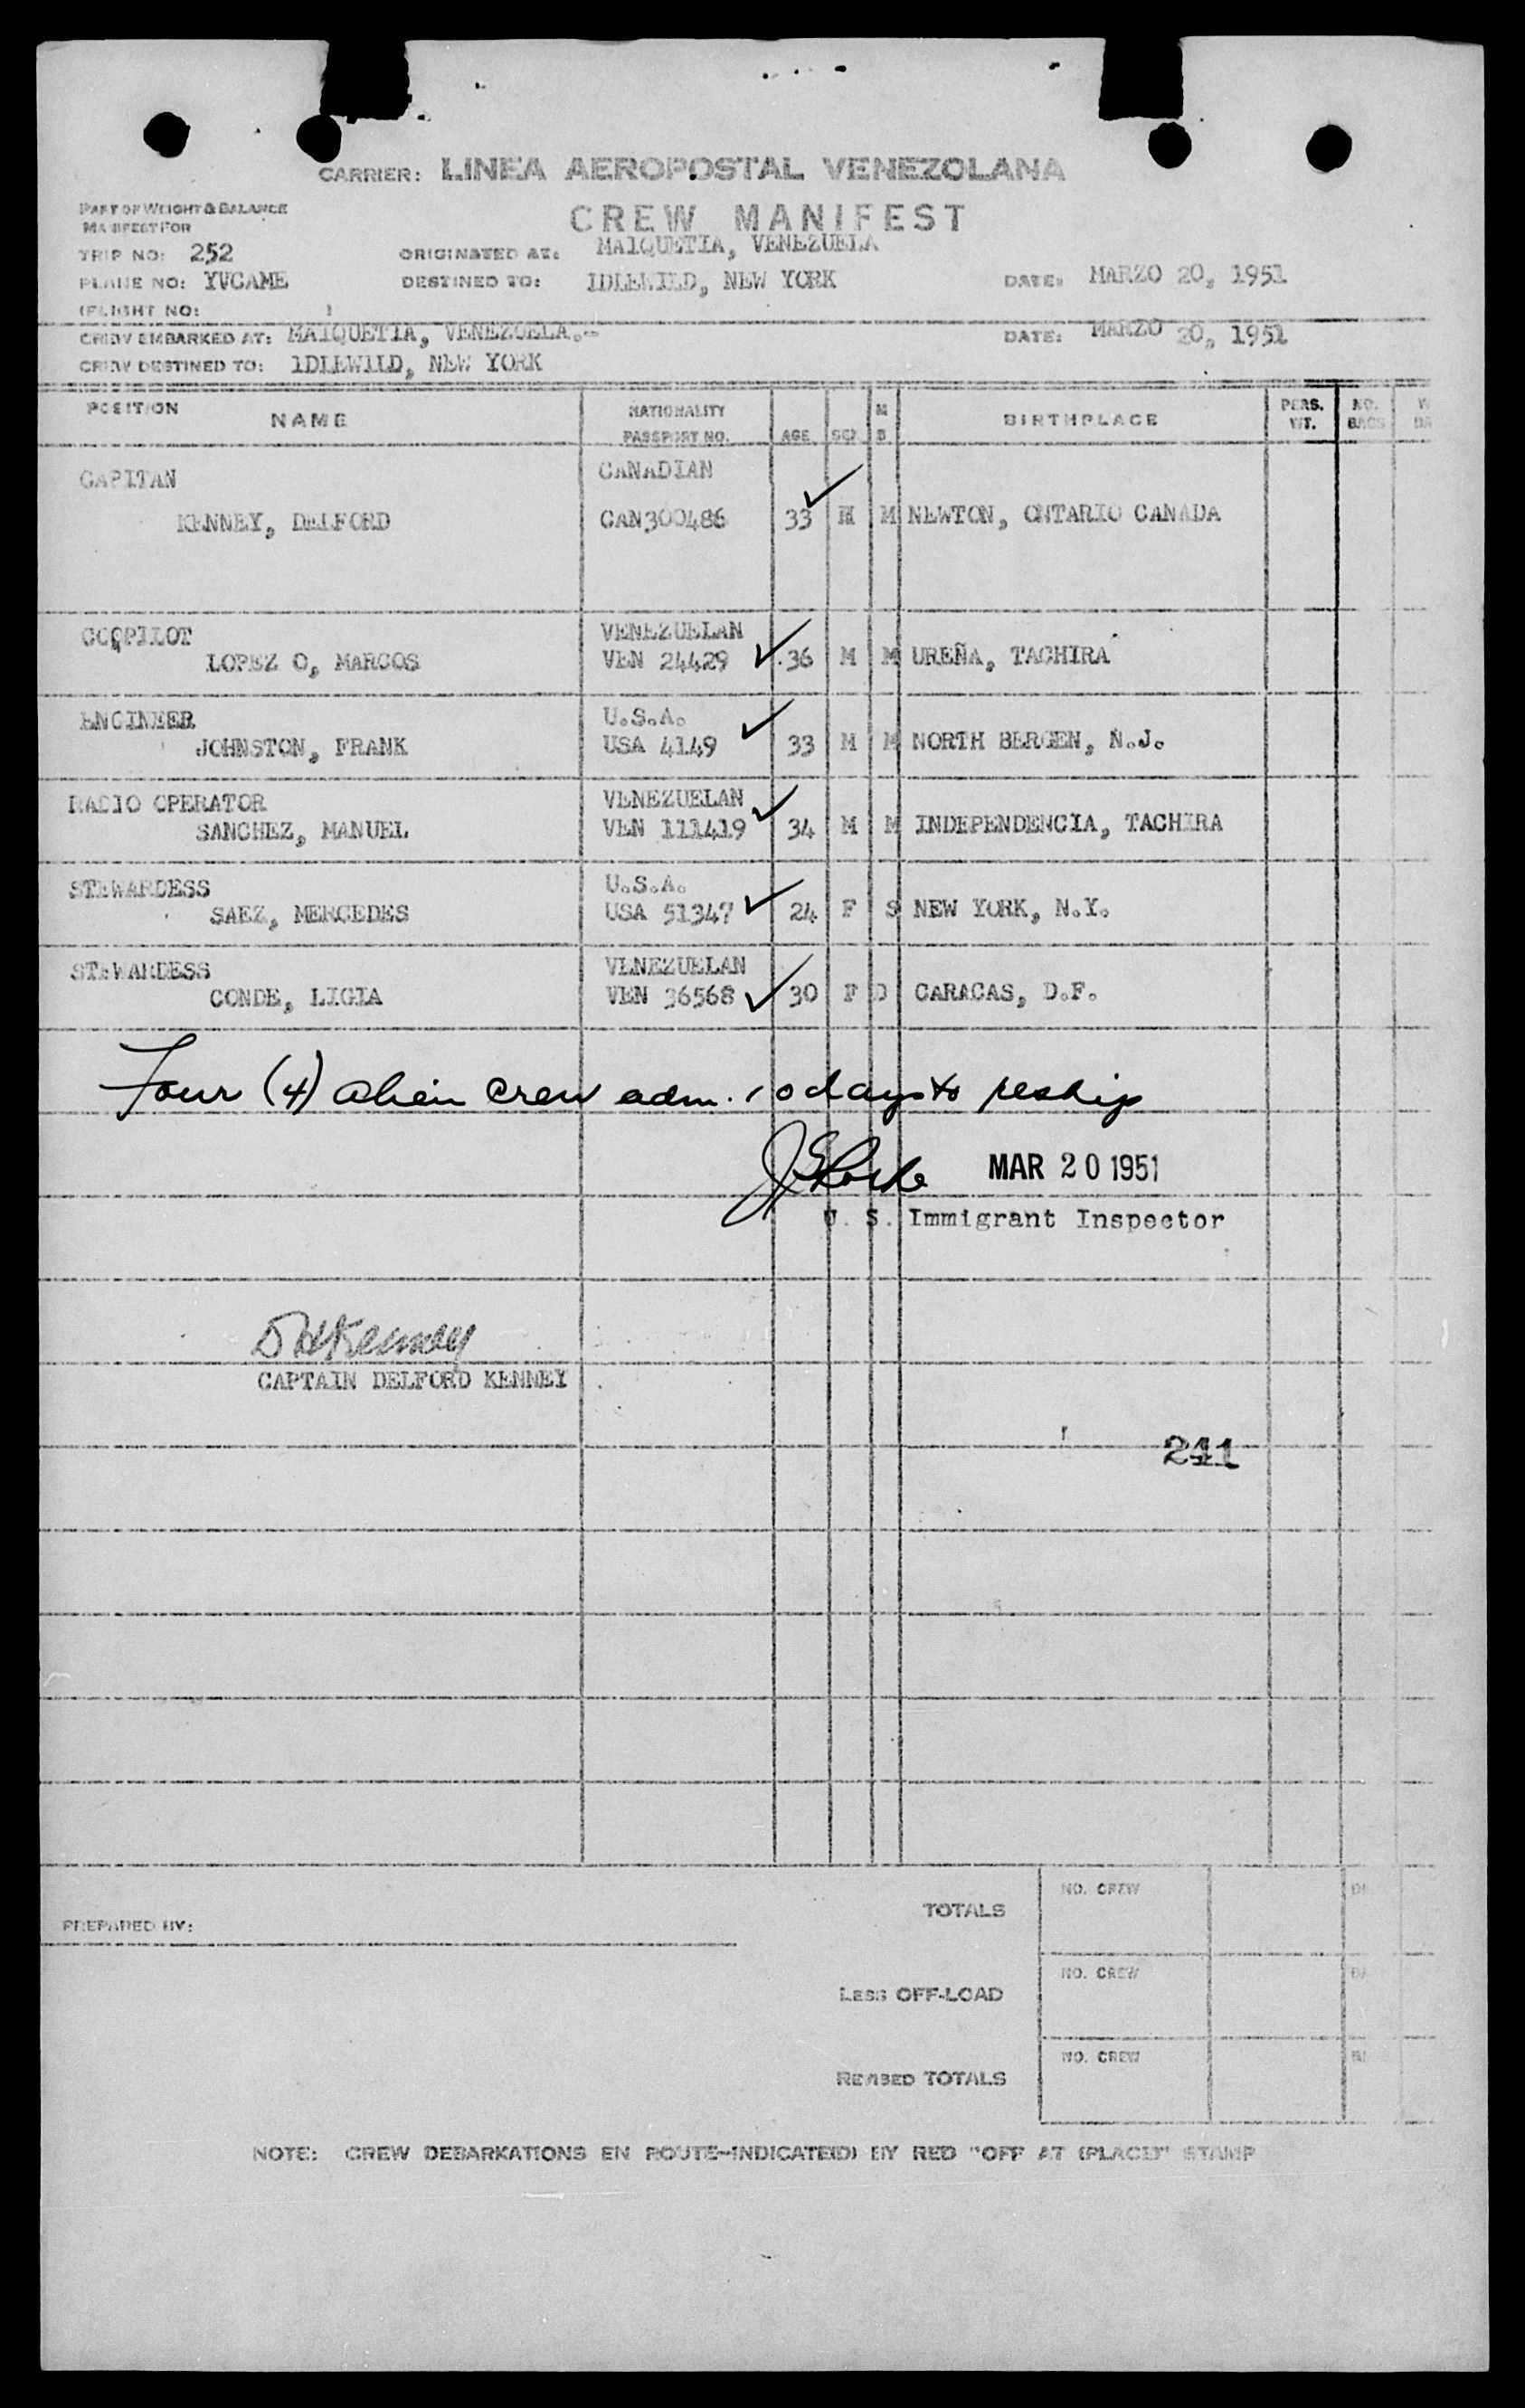 CARRIER: LINEA AEROPOSTAL VENEZOLANA
PART OF WEIGHT & BALANCE
MANIFEST FOR
CREW MANIFEST
TRIP NO: 252 ORIGINATED AT: MAIQUETIA, VENEZUELA
PLANE NO: YVCAME DESTINED TO: IDLEWILD, NEW YORK DATE: MARZO 20, 1951
(FLIGHT NO: )
CREW EMBARKED AT: MAIQUETIA, VENEZUELA.-- DATE: MARZO 20, 1951
CREW DESTINED TO: IDLEWILD, NEW YORK
POSITION NAME NATIONALITY PASSPORT NO. AGE SEX M S BIRTHPLACE PERS. WT. NO. BAGS
CAPITAN CANADIAN
KENNEY, DELFORD CAN300486 33 M M NEWTON, ONTARIO CANADA
COPILOT VENEZUELAN
LOPEZ O, MARCOS VEN 24429 36 M M UREÑA, TACHIRA
ENGINEER U.S.A.
JOHNSTON, FRANK USA 4149 33 M M NORTH BERGEN, N.J.
RADIO OPERATOR VENEZUELAN
SANCHEZ, MANUEL VEN 111419 34 M M INDEPENDENCIA, TACHIRA
STEWARDESS U.S.A.
SAEZ, MERCEDES USA 51347 24 F S NEW YORK, N.Y.
STEWARDESS VENEZUELAN
CONDE, LIGIA VEN 36568 30 F D CARACAS, D.F.
Four (4) alien crew adm. 10 days to reship
MAR 20 1951
U. S. Immigrant Inspector
D H Kenney
CAPTAIN DELFORD KENNEY
241
PREPARED BY:
TOTALS NO. CREW
LESS OFF-LOAD NO. CREW
REVISED TOTALS NO. CREW
NOTE: CREW DEBARKATIONS EN ROUTE—INDICATE(D) BY RED "OFF AT (PLACE)" STAMP